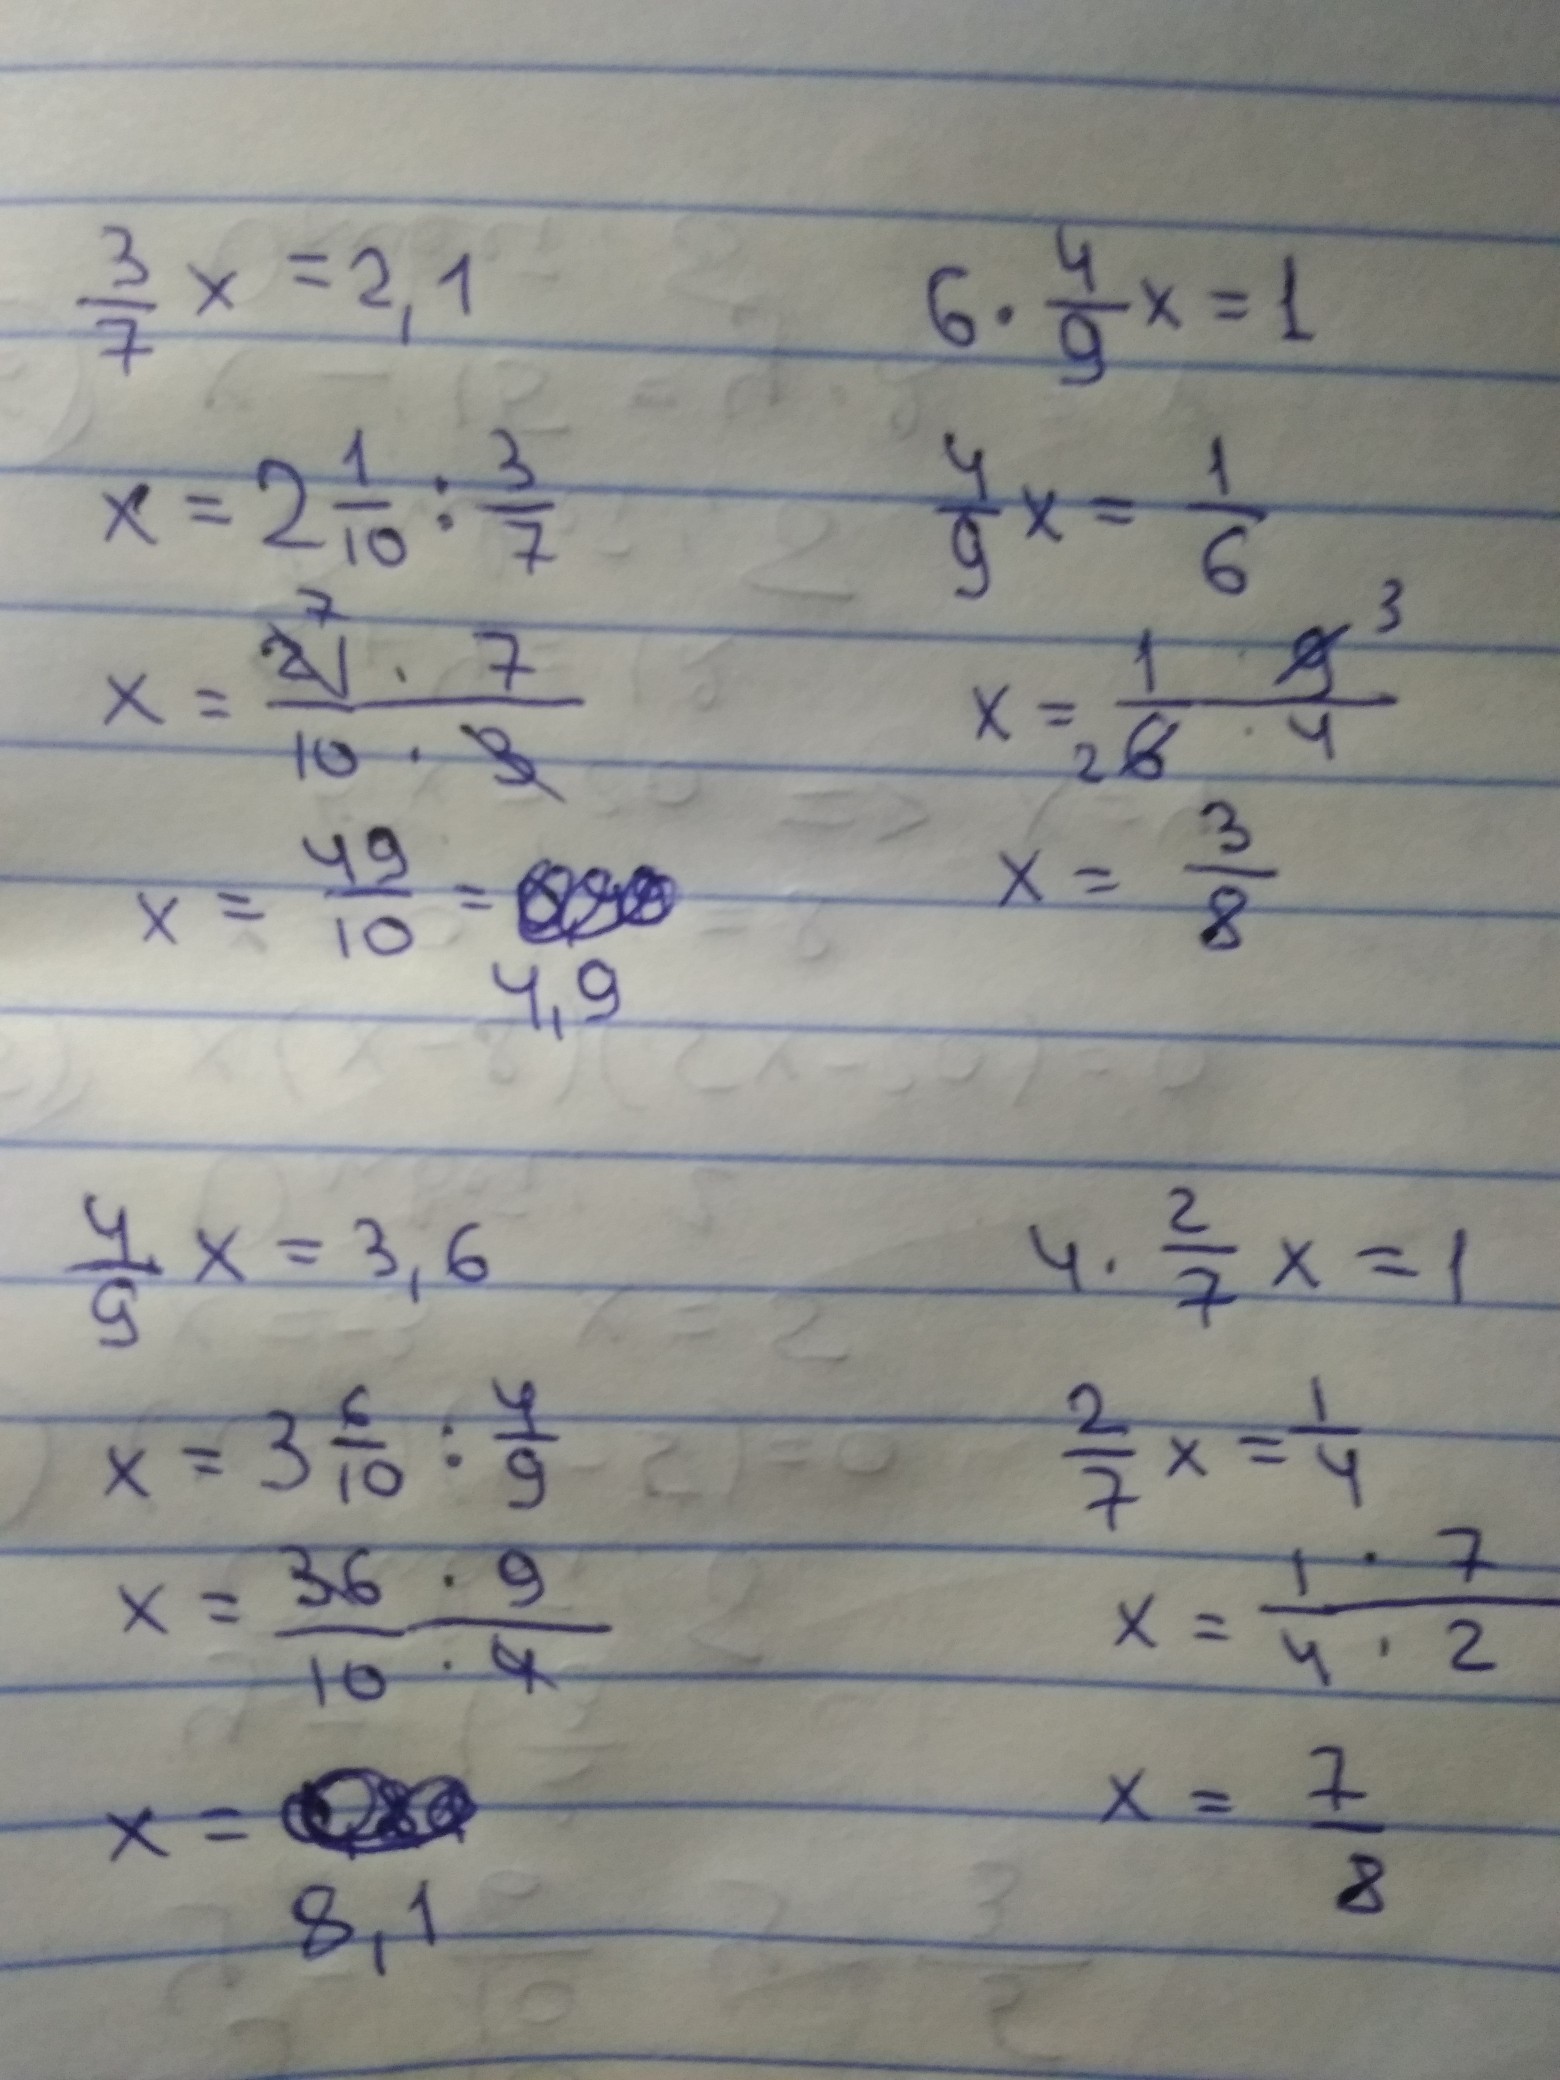 3/7 x = 2,1
x = 2 1/10 : 3/7
x = 21 · 7 / 10 · 3
7
x = 49/10 =
4,9
6 · 4/9 x = 1
4/9 x = 1/6
x = 1 · 9 / 6 · 4
3
2
x = 3/8
4/9 x = 3,6
x = 3 6/10 : 4/9
x = 36 · 9 / 10 · 4
x =
8,1
4 · 2/7 x = 1
2/7 x = 1/4
x = 1 · 7 / 4 · 2
x = 7/8